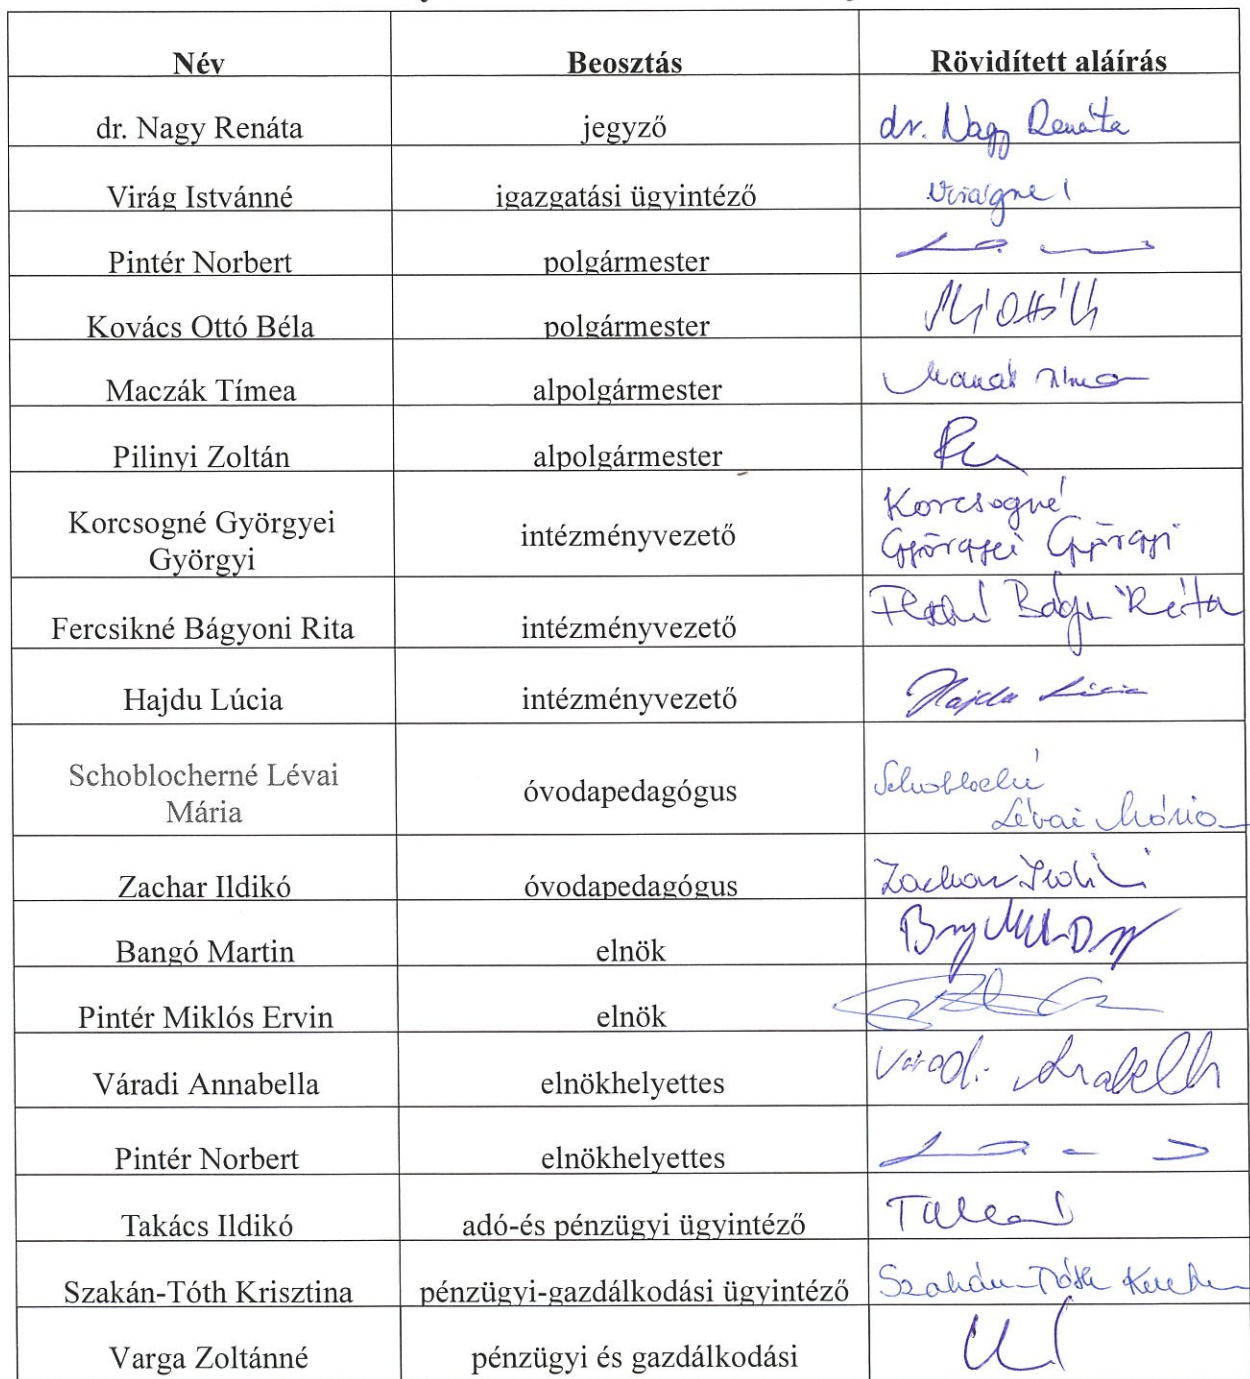 Név Beosztás Rövidített aláírás
dr. Nagy Renáta jegyző dr. Nagy Renáta
Virág Istvánné igazgatási ügyintéző Virágné I
Pintér Norbert polgármester
Kovács Ottó Béla polgármester
Maczák Tímea alpolgármester
Pilinyi Zoltán alpolgármester
Korcsogné Györgyei
Györgyi
intézményvezető
Korcsogné
Györgyei Györgyi
Fercsikné Bágyoni Rita intézményvezető Rita
Hajdu Lúcia intézményvezető Hajdu Lúcia
Schoblocherné Lévai
Mária
óvodapedagógus
Lévai Mária
Zachar Ildikó óvodapedagógus Zachar Ildikó
Bangó Martin elnök
Pintér Miklós Ervin elnök
Váradi Annabella elnökhelyettes Váradi
Pintér Norbert elnökhelyettes
Takács Ildikó adó-és pénzügyi ügyintéző
Szakán-Tóth Krisztina pénzügyi-gazdálkodási ügyintéző Szakán-Tóth
Varga Zoltánné pénzügyi és gazdálkodási